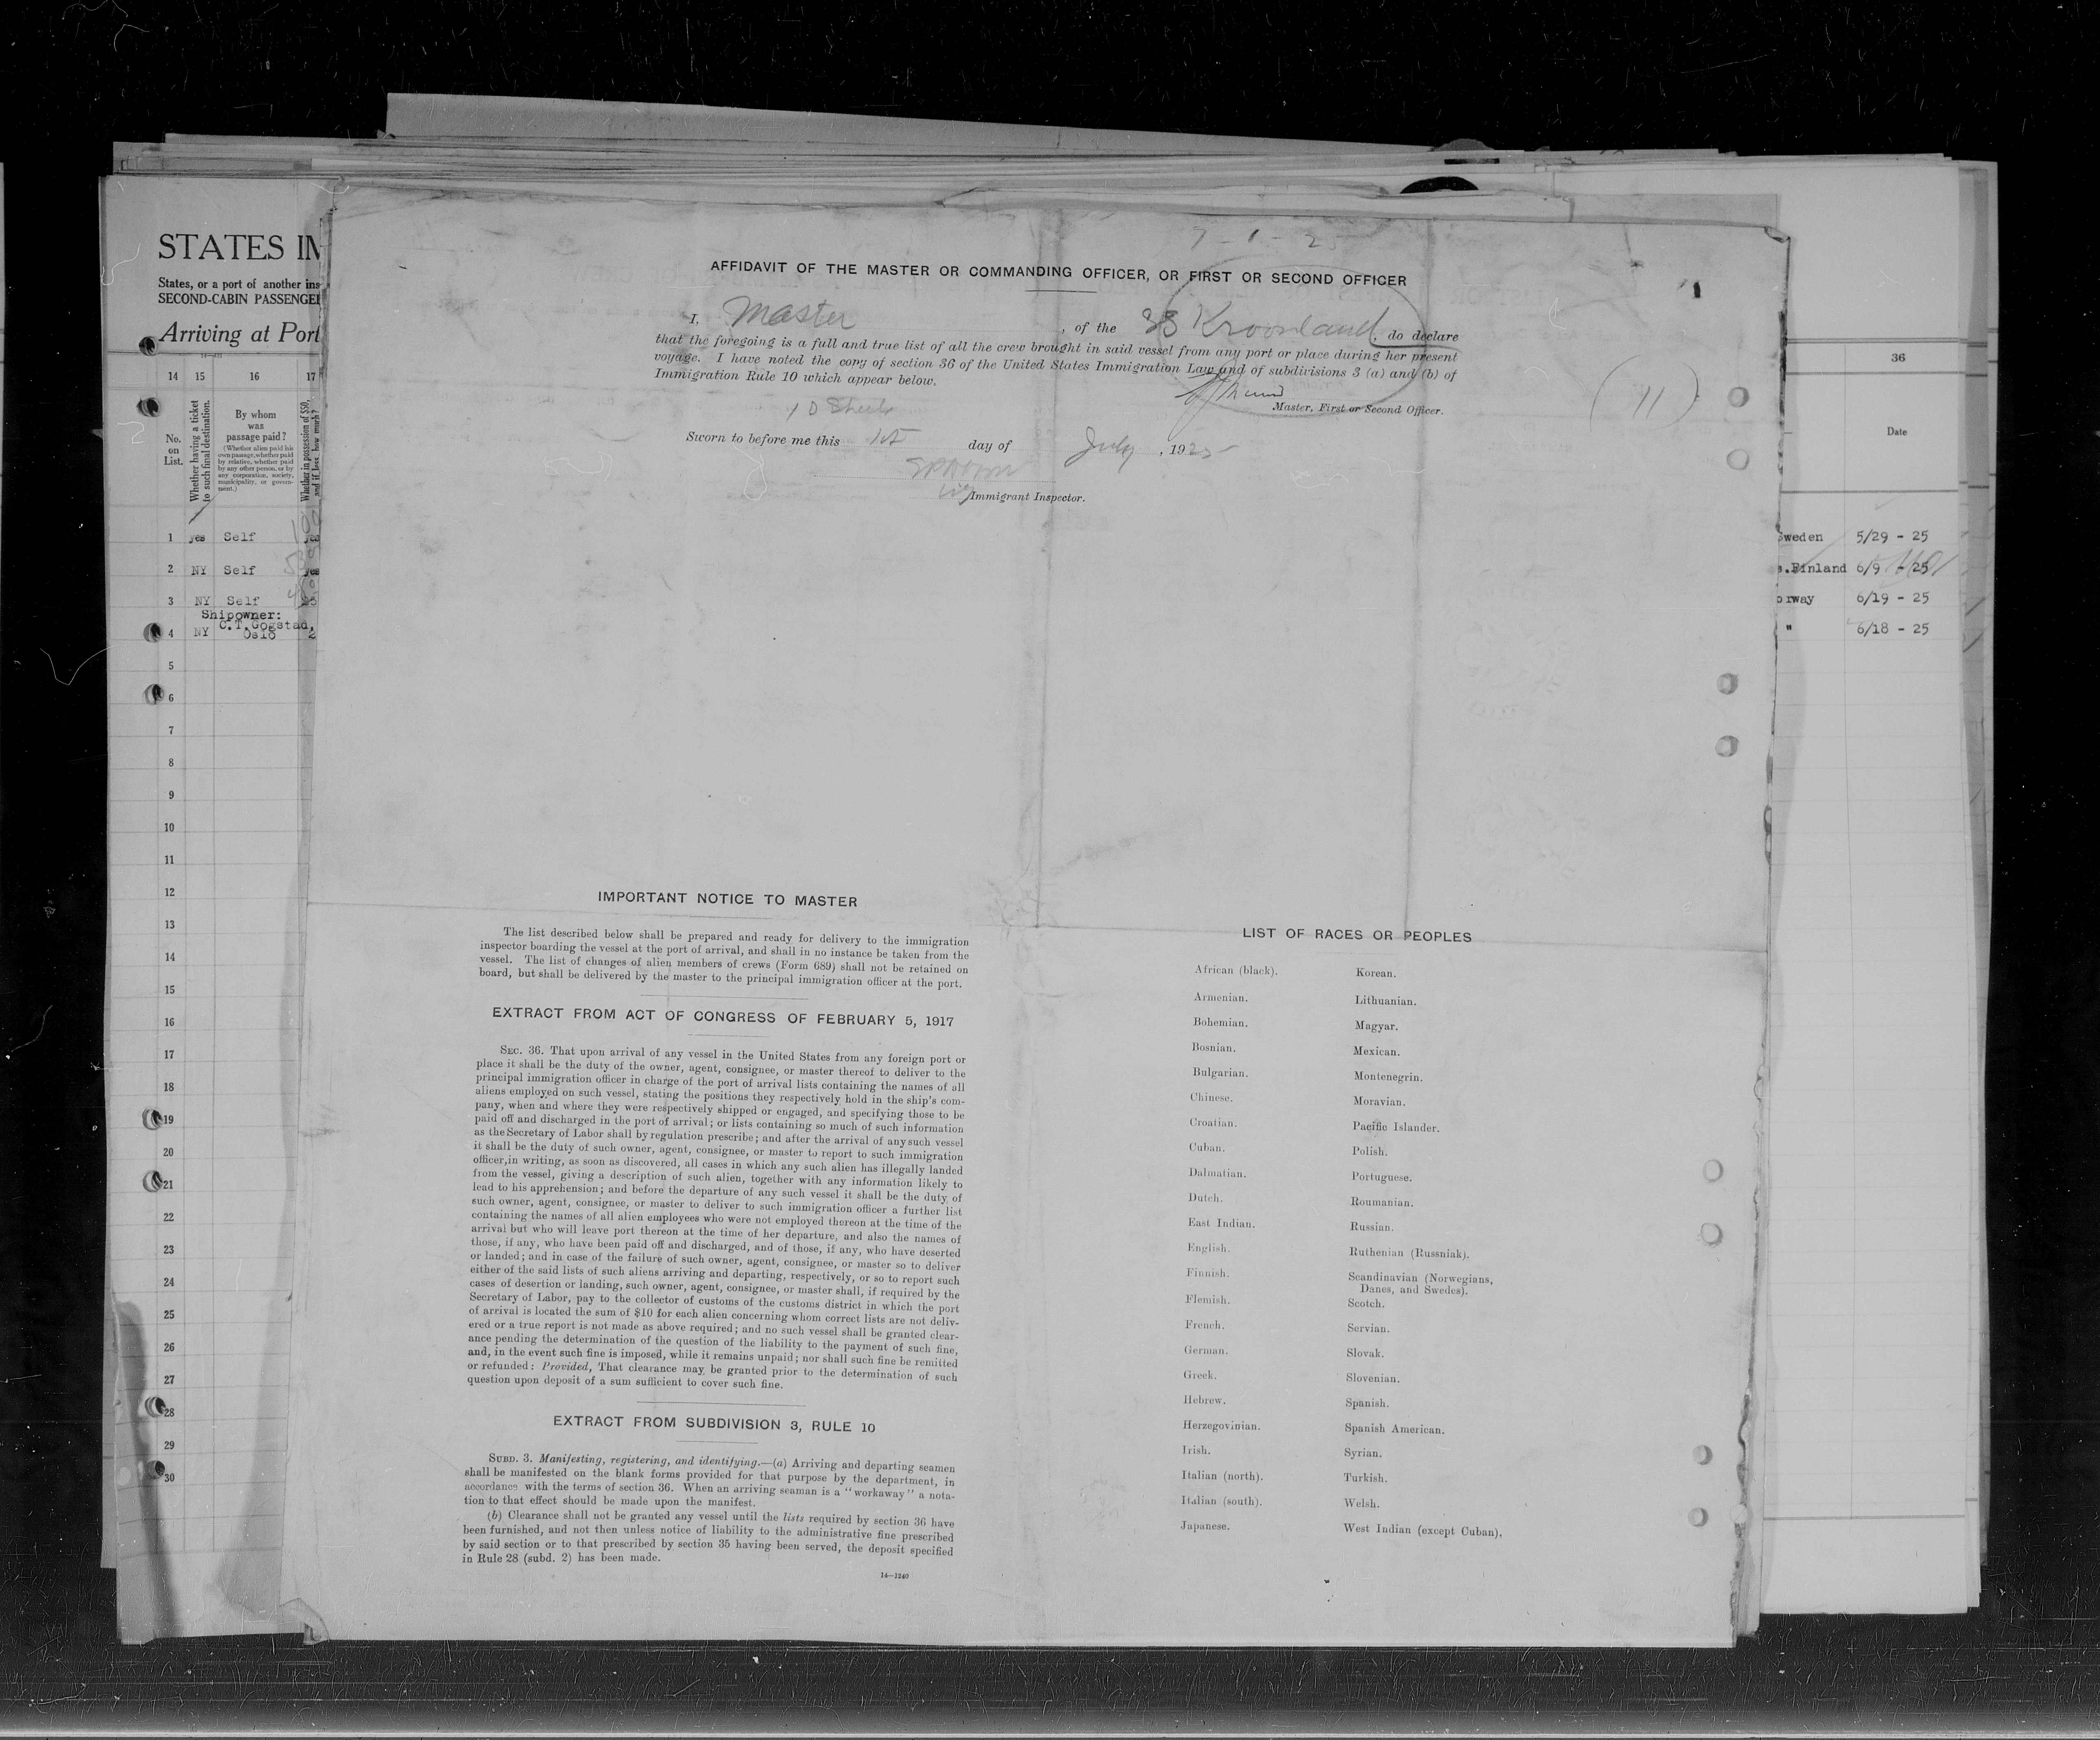 STATES IM
States, or a port of another ins
SECOND-CABIN PASSENGE
Arriving at Port
14 15 16 17
No. on List.
Whether having a ticket to such final destination.
By whom was passage paid?
(Whether alien paid his own passage, whether paid by relative, whether paid by any other person, or by any corporation, society, municipality, or government.)
Whether in possession of $50, and if less, how much?
1 yes Self
2 NY Self yes
3 NY Self
Shipowner:
4 NY C.T.Gogstad, Oslo 2
5
6
7
8
9
10
11
12
13
14
15
16
17
18
19
20
21
22
23
24
25
26
27
28
29
30
7-1-25
AFFIDAVIT OF THE MASTER OR COMMANDING OFFICER, OR FIRST OR SECOND OFFICER
I, Master , of the SS Kroonland, do declare
that the foregoing is a full and true list of all the crew brought in said vessel from any port or place during her present
voyage. I have noted the copy of section 36 of the United States Immigration Law and of subdivisions 3 (a) and (b) of
Immigration Rule 10 which appear below.
Master, First or Second Officer.
10 Sheets
Sworn to before me this 1st day of July , 1925
Immigrant Inspector.
(11)
IMPORTANT NOTICE TO MASTER
The list described below shall be prepared and ready for delivery to the immigration
inspector boarding the vessel at the port of arrival, and shall in no instance be taken from the
vessel. The list of changes of alien members of crews (Form 689) shall not be retained on
board, but shall be delivered by the master to the principal immigration officer at the port.
EXTRACT FROM ACT OF CONGRESS OF FEBRUARY 5, 1917
SEC. 36. That upon arrival of any vessel in the United States from any foreign port or
place it shall be the duty of the owner, agent, consignee, or master thereof to deliver to the
principal immigration officer in charge of the port of arrival lists containing the names of all
aliens employed on such vessel, stating the positions they respectively hold in the ship's com-
pany, when and where they were respectively shipped or engaged, and specifying those to be
paid off and discharged in the port of arrival; or lists containing so much of such information
as the Secretary of Labor shall by regulation prescribe; and after the arrival of any such vessel
it shall be the duty of such owner, agent, consignee, or master to report to such immigration
officer, in writing, as soon as discovered, all cases in which any such alien has illegally landed
from the vessel, giving a description of such alien, together with any information likely to
lead to his apprehension; and before the departure of any such vessel it shall be the duty of
such owner, agent, consignee, or master to deliver to such immigration officer a further list
containing the names of all alien employees who were not employed thereon at the time of the
arrival but who will leave port thereon at the time of her departure, and also the names of
those, if any, who have been paid off and discharged, and of those, if any, who have deserted
or landed; and in case of the failure of such owner, agent, consignee, or master so to deliver
either of the said lists of such aliens arriving and departing, respectively, or so to report such
cases of desertion or landing, such owner, agent, consignee, or master shall, if required by the
Secretary of Labor, pay to the collector of customs of the customs district in which the port
of arrival is located the sum of $10 for each alien concerning whom correct lists are not deliv-
ered or a true report is not made as above required; and no such vessel shall be granted clear-
ance pending the determination of the question of the liability to the payment of such fine,
and, in the event such fine is imposed, while it remains unpaid; nor shall such fine be remitted
or refunded: Provided, That clearance may be granted prior to the determination of such
question upon deposit of a sum sufficient to cover such fine.
EXTRACT FROM SUBDIVISION 3, RULE 10
SUBD. 3. Manifesting, registering, and identifying.—(a) Arriving and departing seamen
shall be manifested on the blank forms provided for that purpose by the department, in
accordance with the terms of section 36. When an arriving seaman is a "workaway" a nota-
tion to that effect should be made upon the manifest.
(b) Clearance shall not be granted any vessel until the lists required by section 36 have
been furnished, and not then unless notice of liability to the administrative fine prescribed
by said section or to that prescribed by section 35 having been served, the deposit specified
in Rule 28 (subd. 2) has been made.
14—1240
LIST OF RACES OR PEOPLES
African (black).
Armenian.
Bohemian.
Bosnian.
Bulgarian.
Chinese.
Croatian.
Cuban.
Dalmatian.
Dutch.
East Indian.
English.
Finnish.
Flemish.
French.
German.
Greek.
Hebrew.
Herzegovinian.
Irish.
Italian (north).
Italian (south).
Japanese.
Korean.
Lithuanian.
Magyar.
Mexican.
Montenegrin.
Moravian.
Pacific Islander.
Polish.
Portuguese.
Roumanian.
Russian.
Ruthenian (Russniak).
Scandinavian (Norwegians,
Danes, and Swedes).
Scotch.
Servian.
Slovak.
Slovenian.
Spanish.
Spanish American.
Syrian.
Turkish.
Welsh.
West Indian (except Cuban).
36
Date
Sweden 5/29 - 25
s.Finland 6/9 - 25
orway 6/19 - 25
" 6/18 - 25